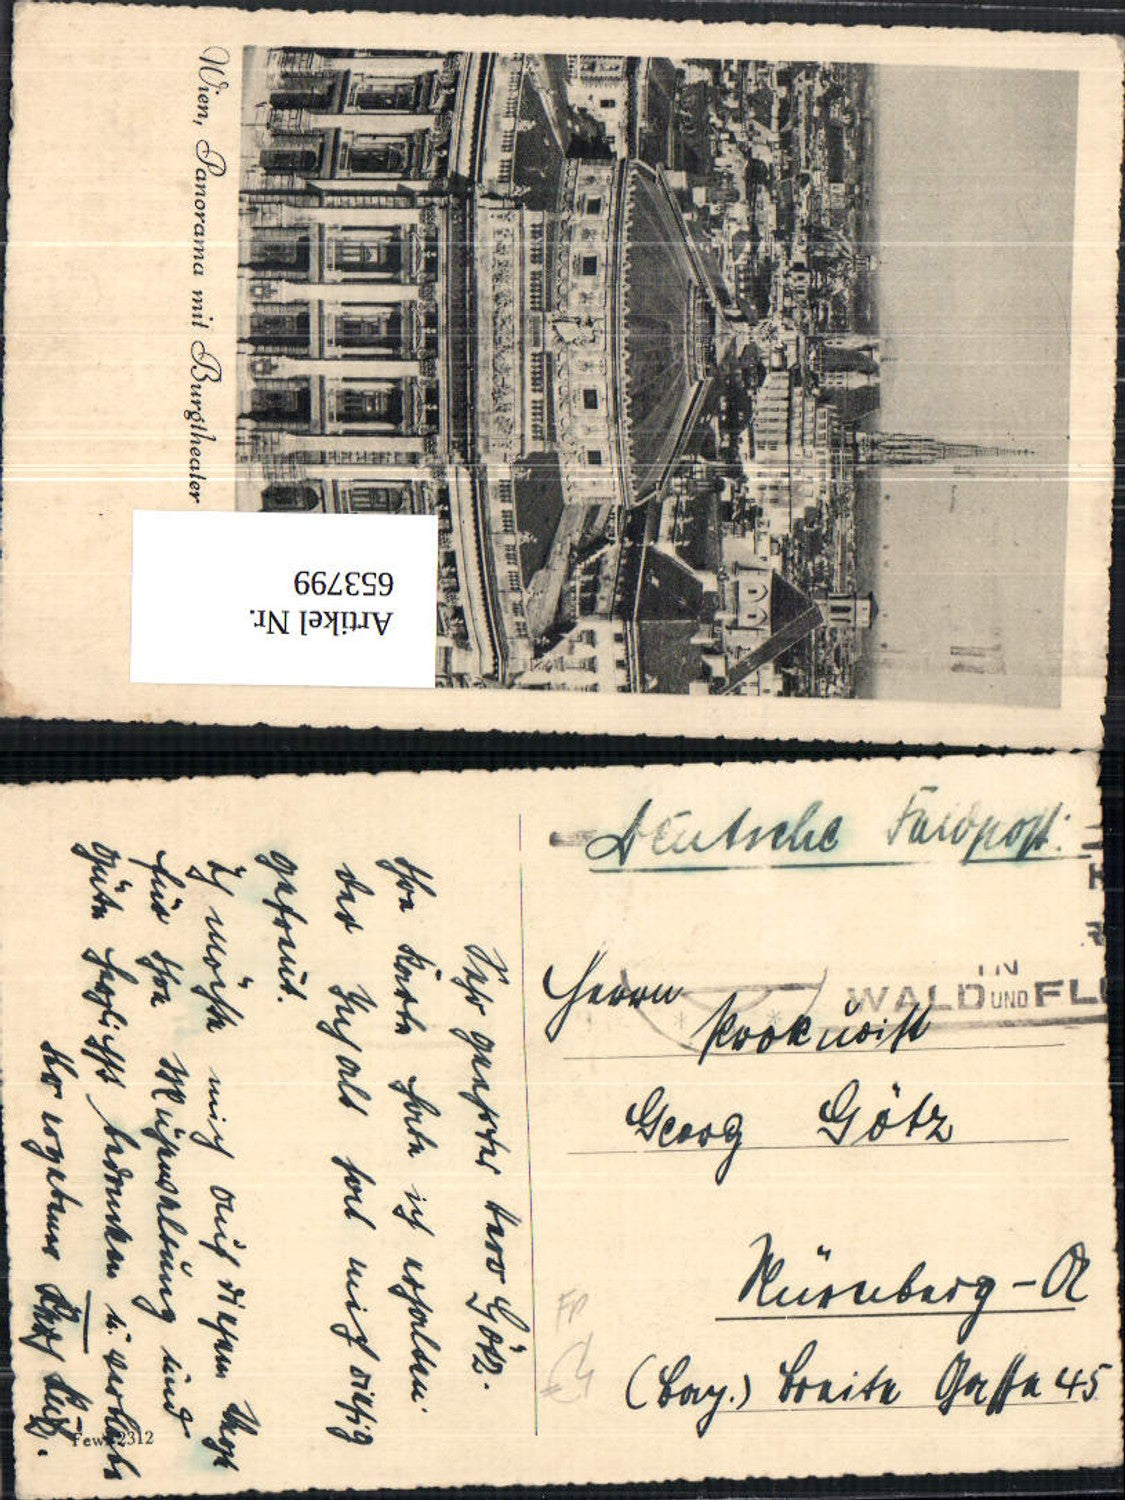 Wien, Panorama mit Burgtheater
Artikel Nr.
653799
Deutsche Feldpost!
IN
WALD UND FLU
Herrn
Prokurist
Georg Götz
Nürnberg-A
(Bay.) Breite Gasse 45
Sehr geehrter Herr Götz.
Ihre Karte habe ich erhalten
der Inhalt hat mich richtig
gefreut.
Ich möchte mich auf diesem Wege
für Ihre Mühewaltung und
Güte herzlichst bedanken u. verbleibe
Ihr ergebener
2312